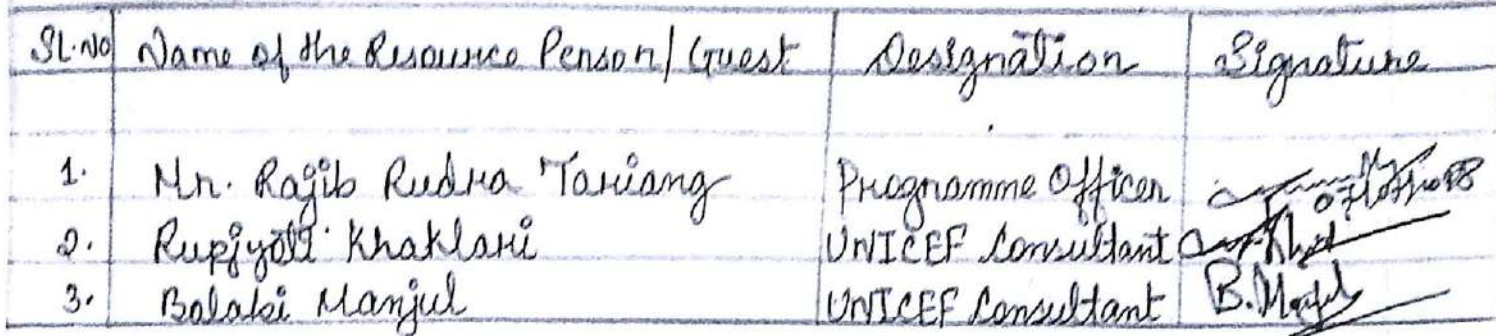 SL.NO Name of the Resource Person/Guest Designation Signature
1. Mr. Rajib Rudra Tariang Programme Officer
2. Rupjyoti Khaklari UNICEF Consultant
3. Balabi Manjul UNICEF Consultant B. Manjul